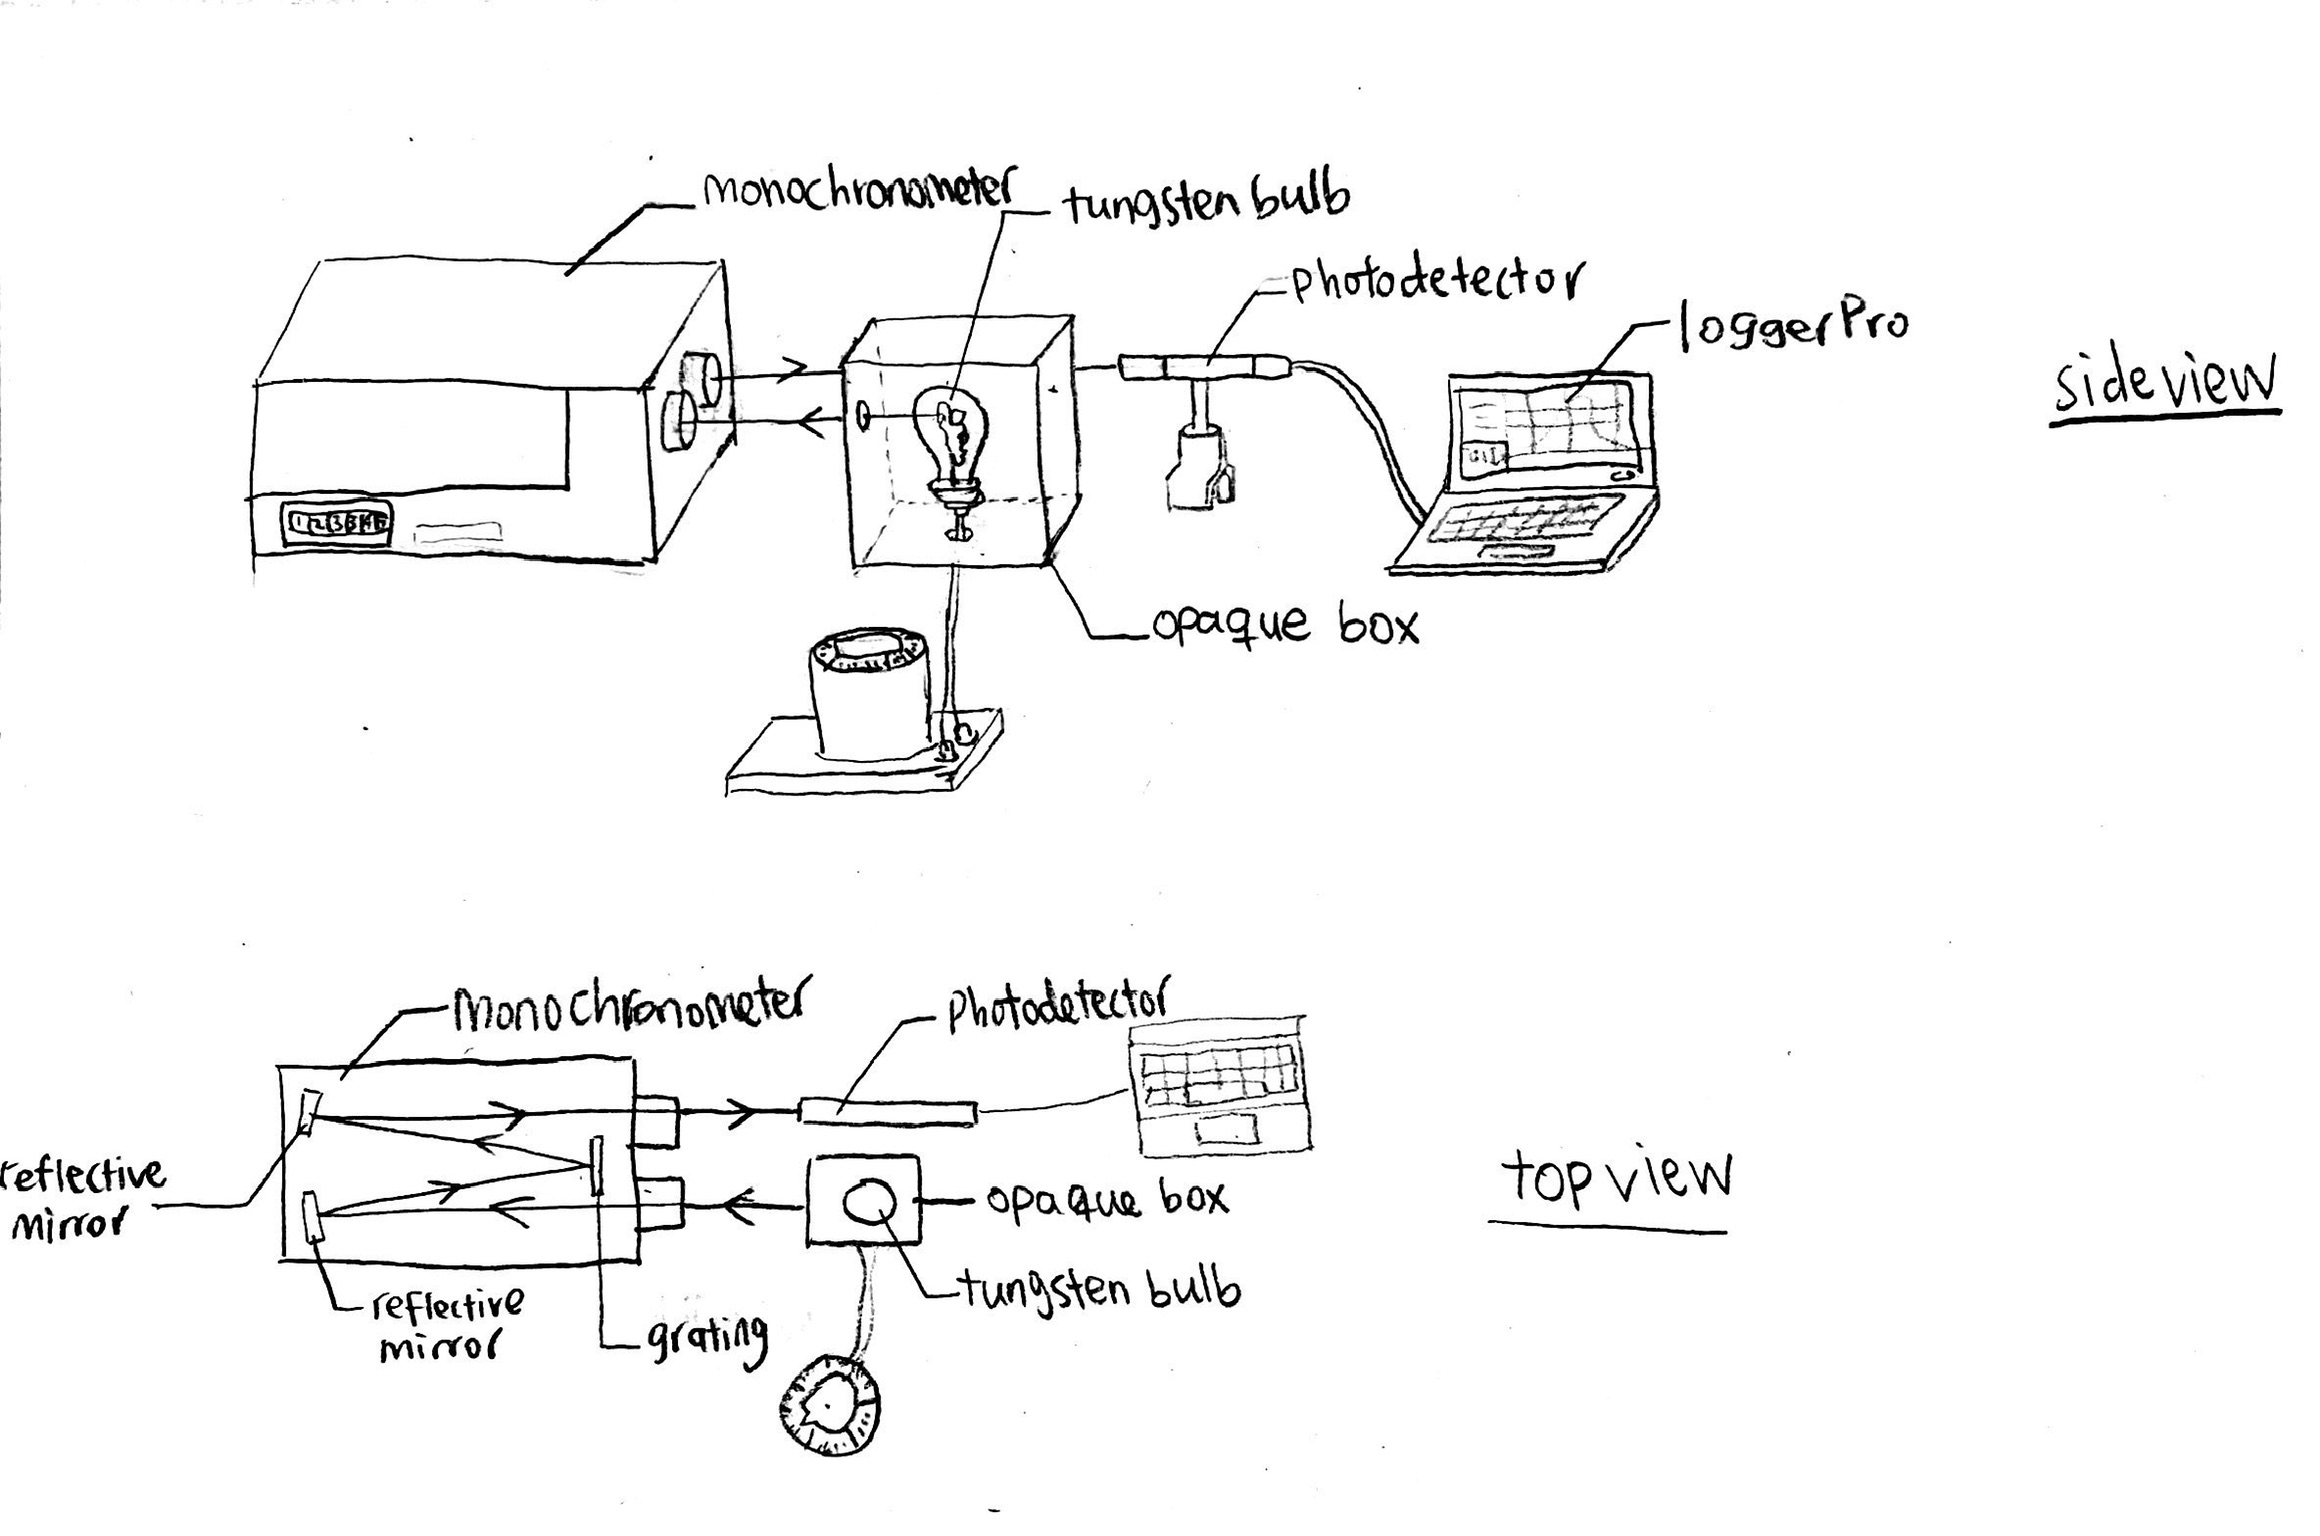 monochronometer
tungsten bulb
photodetector
loggerPro
side view
opaque box
Monochronometer
Photodetector
reflective
mirror
top view
opaque box
tungsten bulb
reflective
mirror
grating